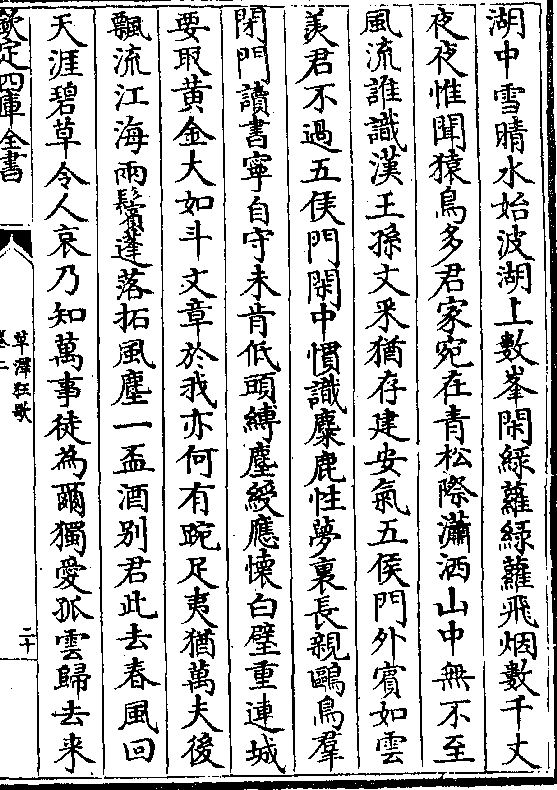 湖中雪晴水始波湖上數峯閑綠蘿綠蘿飛烟數千丈
夜夜惟聞猿鳥多君家宛在青松際瀟洒山中無不至
風流誰識漢王孫文采猶存建安氣五侯門外賓如雲
羡君不過五侯門閑中慣識麋鹿性夢裏長親鷗鳥羣
閉門讀書寧自守未肯低頭縛塵綬應懐白璧重連城
要取黄金大如斗文章於我亦何有踠足夷猶萬夫後
飄流江海兩鬢蓬落拓風塵一盃酒别君此去春風回
天涯碧草令人哀乃知萬事徒為爾獨愛孤雲歸去来
欽定四庫全書
草澤狂歌
卷二
二十